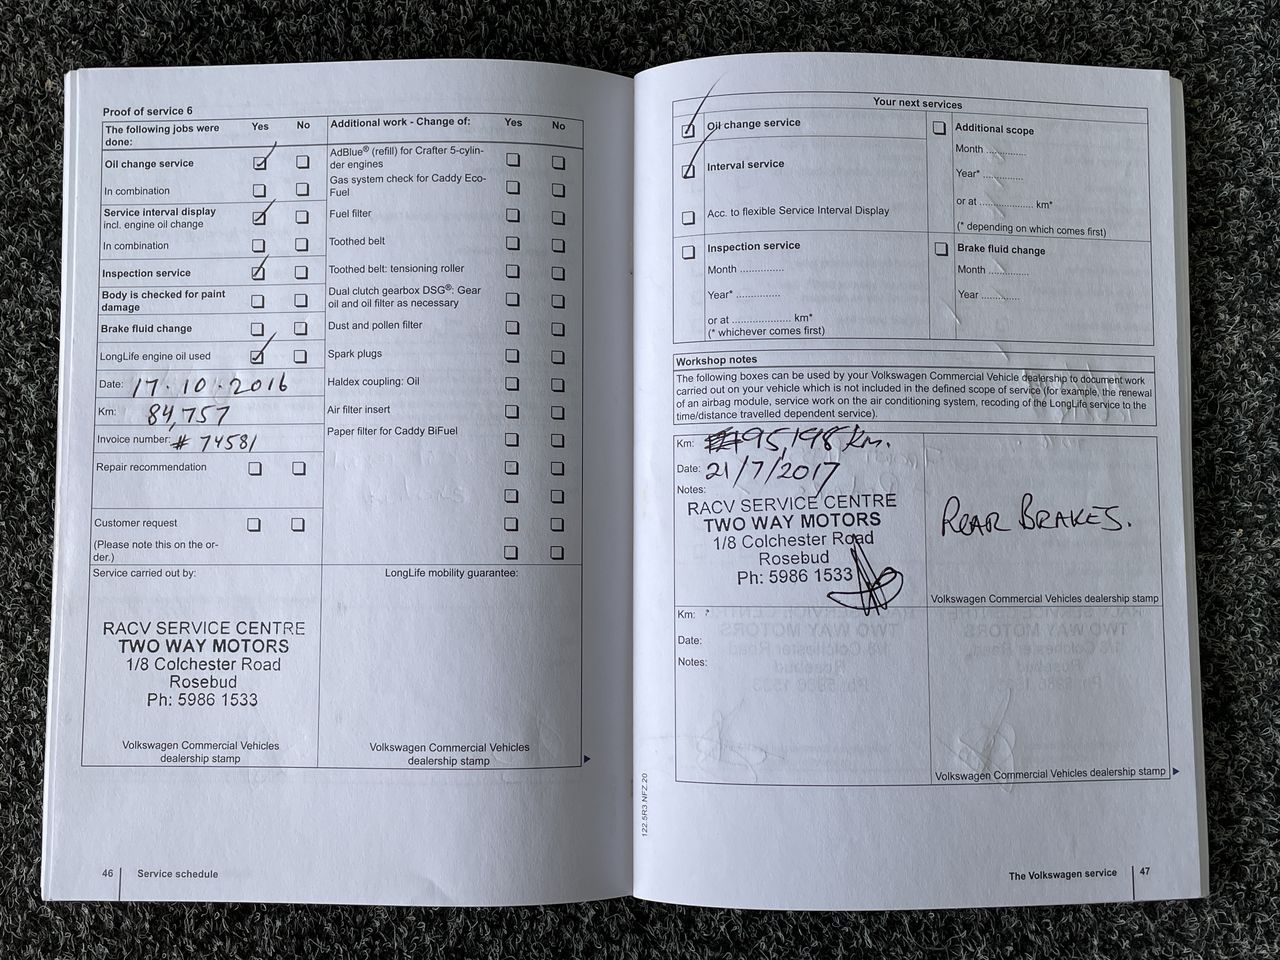 Proof of service 6
The following jobs were done: Yes No
Oil change service
In combination
Service interval display
incl. engine oil change
In combination
Inspection service
Body is checked for paint
damage
Brake fluid change
LongLife engine oil used
Date: 17.10.2016
Km: 84,757
Invoice number: # 74581
Repair recommendation
Customer request
(Please note this on the or-
der.)
Additional work - Change of: Yes No
AdBlue® (refill) for Crafter 5-cylin-
der engines
Gas system check for Caddy Eco-
Fuel
Fuel filter
Toothed belt
Toothed belt: tensioning roller
Dual clutch gearbox DSG®: Gear
oil and oil filter as necessary
Dust and pollen filter
Spark plugs
Haldex coupling: Oil
Air filter insert
Paper filter for Caddy BiFuel
Service carried out by:
RACV SERVICE CENTRE
TWO WAY MOTORS
1/8 Colchester Road
Rosebud
Ph: 5986 1533
Volkswagen Commercial Vehicles
dealership stamp
LongLife mobility guarantee:
Volkswagen Commercial Vehicles
dealership stamp
46 Service schedule
Your next services
Oil change service
Interval service
Acc. to flexible Service Interval Display
Inspection service
Month ..............
Year* ..............
or at ................... km*
(* whichever comes first)
Additional scope
Month .............
Year* .............
or at ................. km*
(* depending on which comes first)
Brake fluid change
Month .............
Year .............
Workshop notes
The following boxes can be used by your Volkswagen Commercial Vehicle dealership to document work
carried out on your vehicle which is not included in the defined scope of service (for example, the renewal
of an airbag module, service work on the air conditioning system, recoding of the LongLife service to the
time/distance travelled dependent service).
Km: 95,198 km.
Date: 21/7/2017
Notes:
RACV SERVICE CENTRE
TWO WAY MOTORS
1/8 Colchester Road
Rosebud
Ph: 5986 1533
REAR BRAKES.
Volkswagen Commercial Vehicles dealership stamp
Km:
Date:
Notes:
Volkswagen Commercial Vehicles dealership stamp
122.5R3.NFZ.20
The Volkswagen service 47